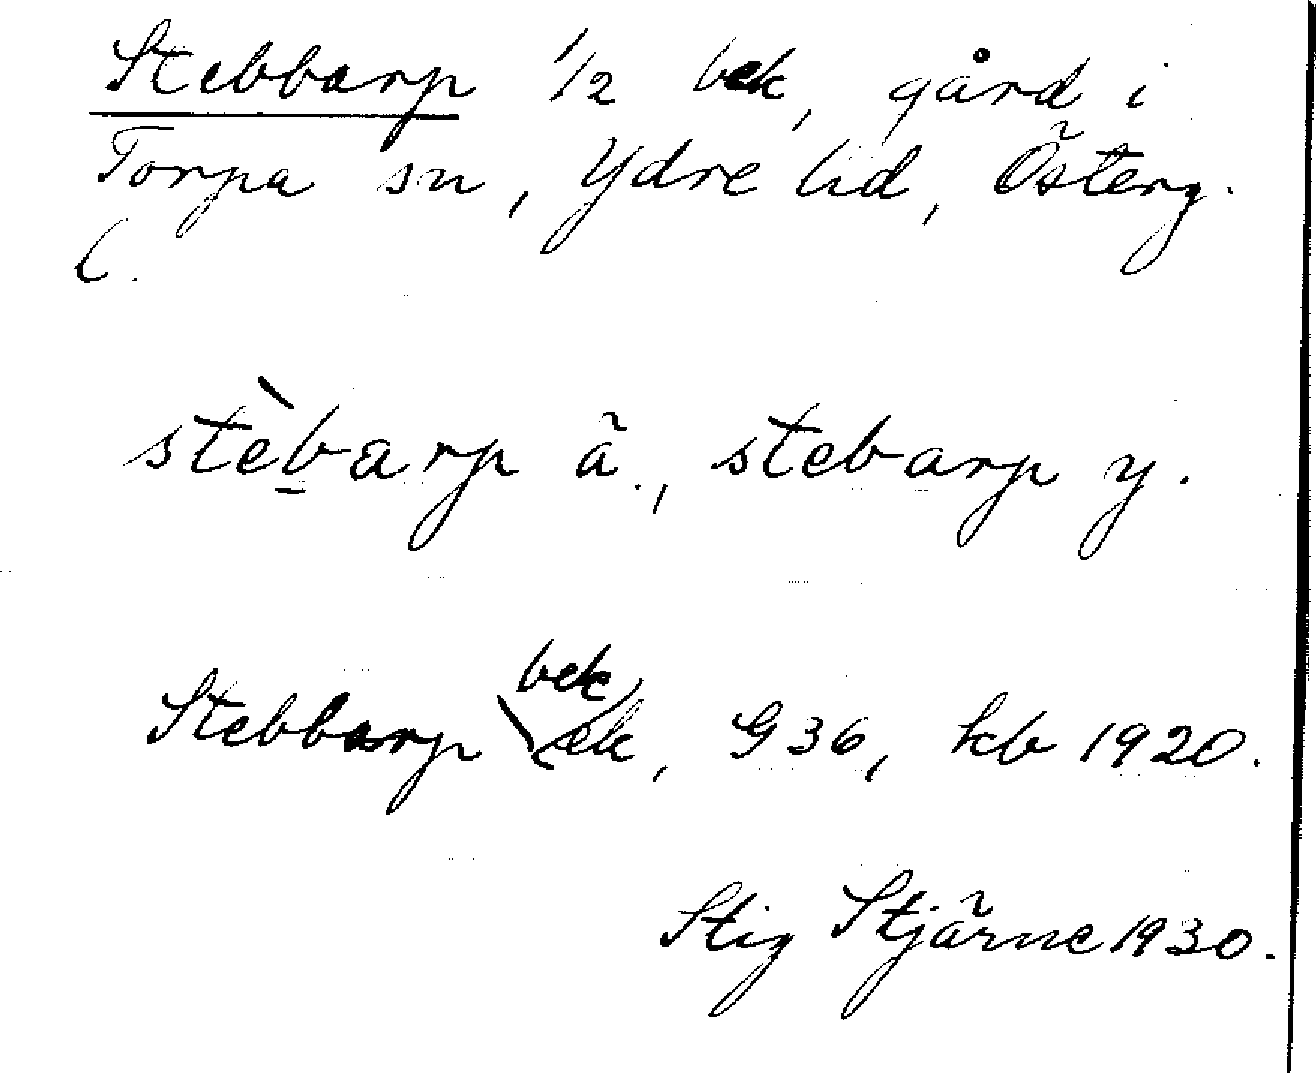 Stebbarp 1/2 bek, gård i
Torpa sn, Ydre hd, Österg.
l.
stèbarp ä., stebarp y.
bek
Stebbarp ek, G 36, kb 1920.
Stig Stjärne 1930.